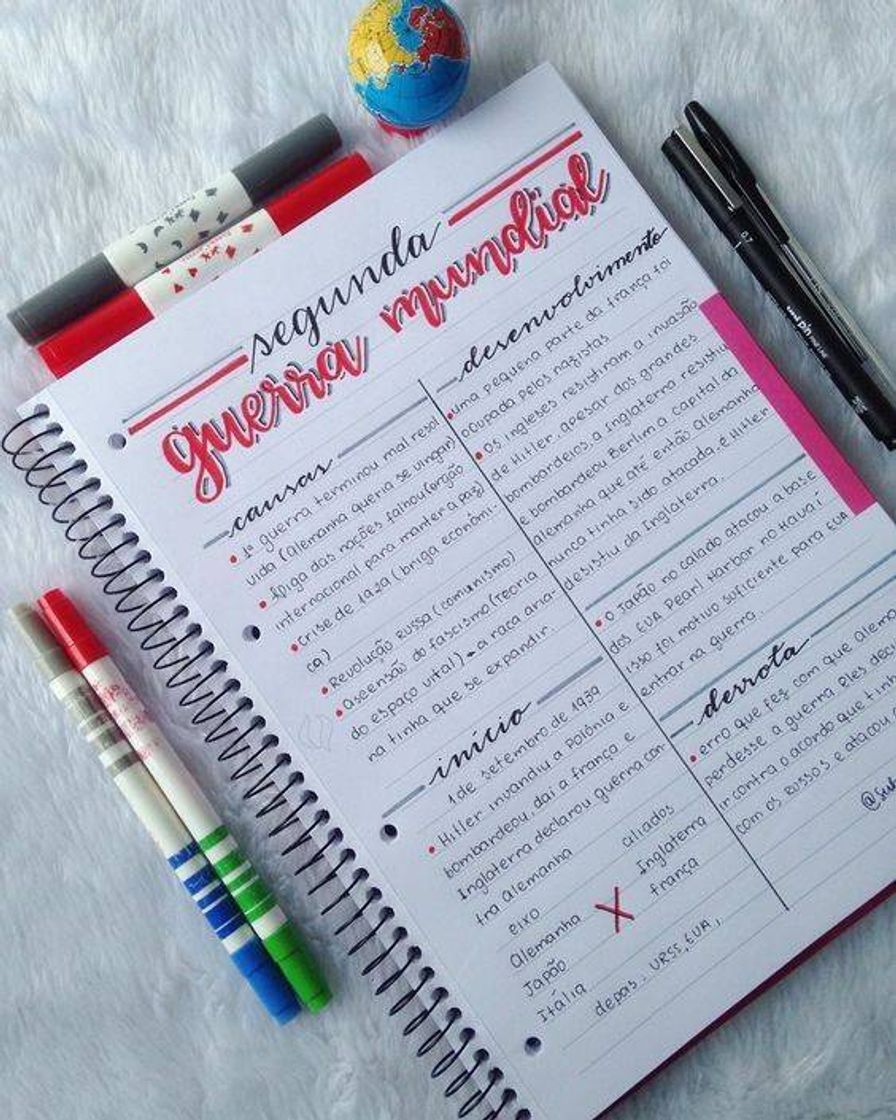 segunda
guerra mundial
causas
• 1ª guerra terminou mal resol
vida (Alemanha queria se vingar)
• A liga das nações falhou (orgão
internacional para manter a paz)
• Crise de 1929 (briga econômi-
ca)
• Revolução RUSSA (comunismo)
• Ascensão do fascismo (Teoria
do espaço vital) → a raça aria-
na tinha que se expandir.
início
1 de setembro de 1939
• Hitler invandiu a Polônia e
bombardeou, daí a frança e
Inglaterra declarou guerra con-
tra Alemanha
eixo aliados
Alemanha X Inglaterra
Japão frança
Itália
depois.. URSS, EUA,
desenvolvimento
• uma pequena parte da frança foi
ocupada pelos nazistas
• Os ingleses resistiram a invasão
de Hitler, apesar dos grandes
bombardeios, a Inglaterra resistiu
e bombardeou Berlim a capital da
Alemanha que até então Alemanha
nunca tinha sido atacada, e Hitler
desistiu da Inglaterra.
• O Japão no calado atacou a base
dos EUA Pearl Harbor no Havaí
isso foi motivo suficiente para EUA
entrar na guerra.
derrota
• erro que fez com que Alem
perdesse a guerra Eles deci
ir contra o acordo que tinh
com os Russos e atacou
0.7
uni pin FINE LINE